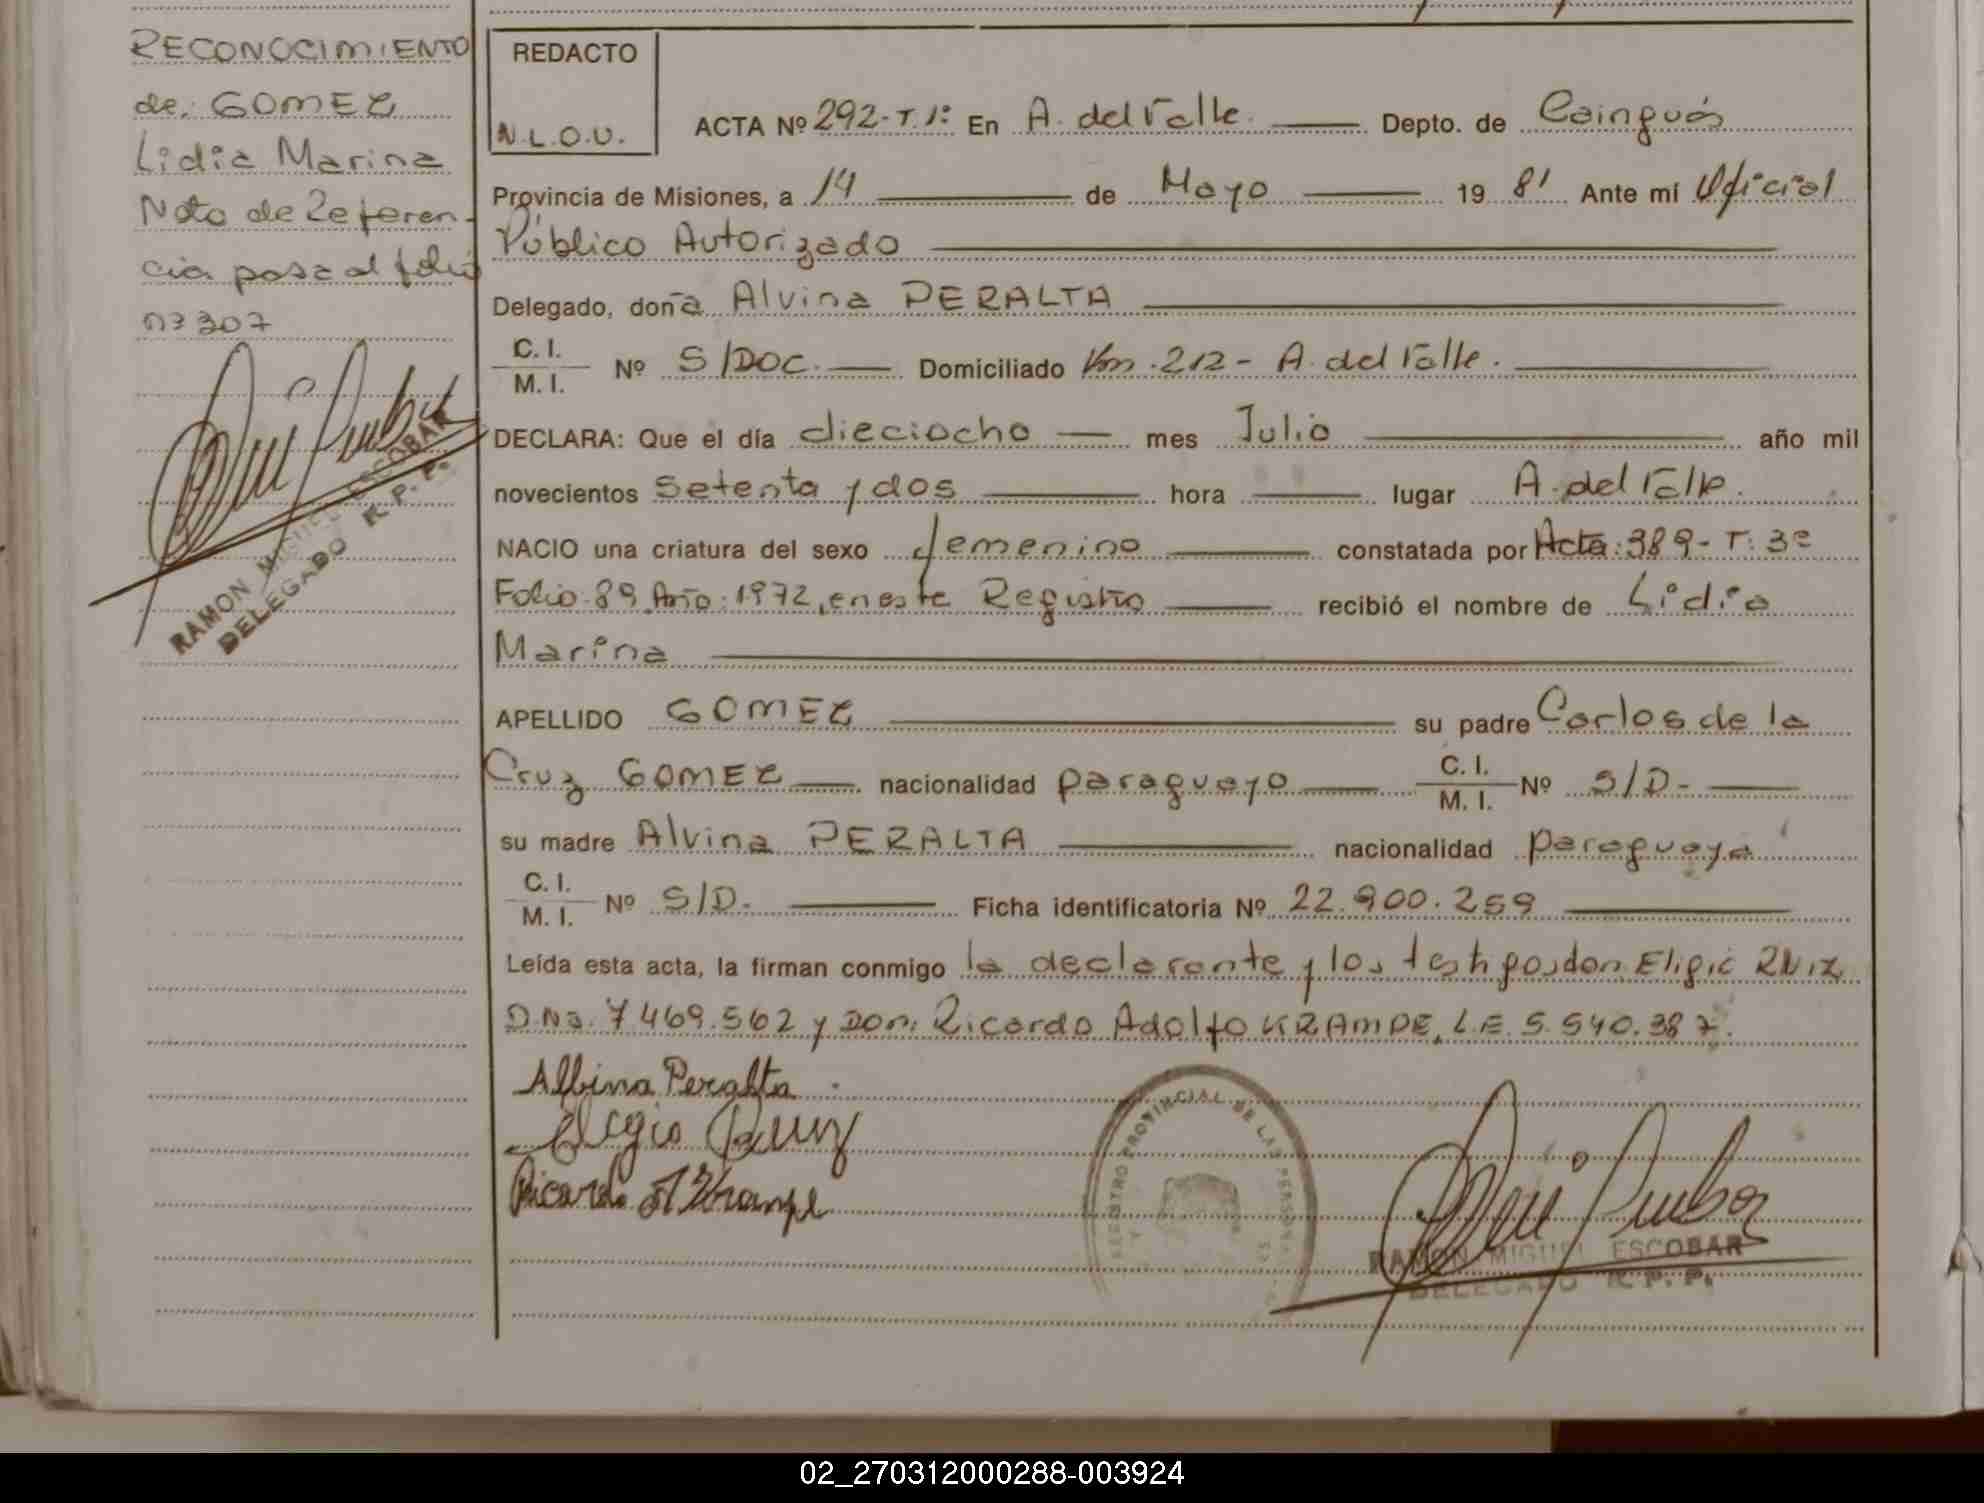 RECONOCIMIENTO
de: GOMEZ
Lidia Marina
Nota de Referen-
cia pasa al folio
Nº 307
RAMON MIGUEL ESCOBAR
DELEGADO R. P. P.
REDACTO
N.L.O.U.
ACTA Nº 292-T.1º En A. del Valle. Depto. de Cainguás
Provincia de Misiones, a 14 de Mayo 19 81 Ante mí Oficial
Público Autorizado
Delegado, doña Alvina PERALTA
C. I.
M. I. Nº S/DOC. Domiciliado Km. 212 - A. del Valle.
DECLARA: Que el día dieciocho mes Julio año mil
novecientos setenta y dos hora lugar A. del Valle.
NACIO una criatura del sexo femenino constatada por Acta: 389-T: 3º
Folio: 89 Año: 1972, en este Registro recibió el nombre de Lidia
Marina
APELLIDO GOMEZ su padre Carlos de la
Cruz GOMEZ nacionalidad paraguayo C. I.
M. I. Nº S/D.-
su madre Alvina PERALTA nacionalidad paraguaya
C. I.
M. I. Nº S/D. Ficha identificatoria Nº 22.900.259
Leída esta acta, la firman conmigo la declarante y los testigos don Eligio RUiz
D.N.I. 7.469.562 y Don: Ricardo Adolfo KRAMPE, L.E. 5.540.387.
Albina Peralta
Eligio Ruiz
Ricardo A Krampe
REGISTRO PROVINCIAL DE LAS PERSONAS
RAMON MIGUEL ESCOBAR
DELEGADO R. P. P.
02_270312000288-003924